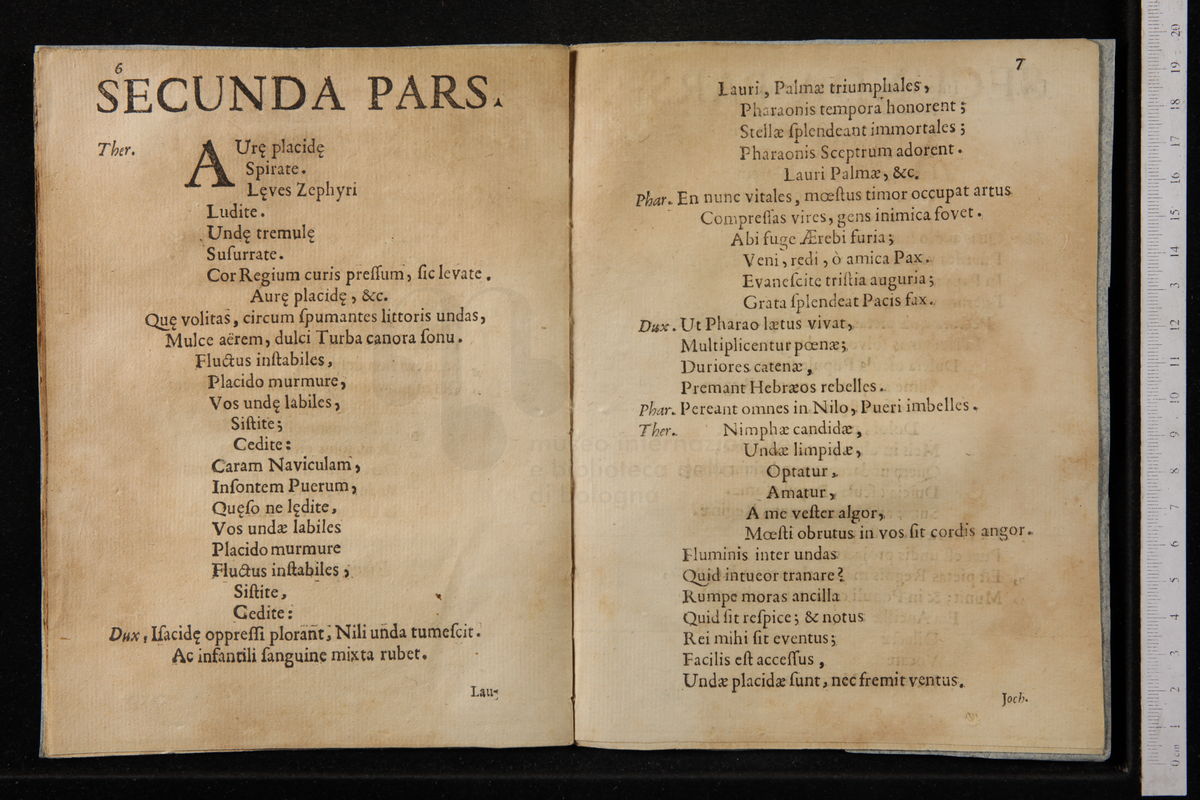 6
SECUNDA PARS.
Ther. AUrę placidę
Spirate.
Lęves Zephyri
Ludite.
Undę tremulę
Suſurrate.
Cor Regium curis preſſum, ſic levate.
Aurę placidę, &c.
Quę volitas, circum ſpumantes littoris undas,
Mulce aërem, dulci Turba canora ſonu.
Fluctus inſtabiles,
Placido murmure,
Vos undę labiles,
Siſtite;
Cedite:
Caram Naviculam,
Inſontem Puerum,
Quęſo ne lędite,
Vos undæ labiles
Placido murmure
Fluctus inſtabiles,
Siſtite,
Cedite:
Dux, Iſacidę oppreſſi plorant, Nili unda tumeſcit.
Ac infantili ſanguine mixta rubet.
Lau-
7
Lauri, Palmæ triumphales,
Pharaonis tempora honorent;
Stellæ ſplendeant immortales;
Pharaonis Sceptrum adorent.
Lauri Palmæ, &c.
Phar. En nunc vitales, mœſtus timor occupat artus
Compreſſas vires, gens inimica fovet.
Abi fuge Ærebi furia;
Veni, redi, ò amica Pax.
Evaneſcite triſtia auguria;
Grata ſplendeat Pacis fax.
Dux. Ut Pharao lætus vivat,
Multiplicentur pœnæ;
Duriores catenæ,
Premant Hebræos rebelles.
Phar. Pereant omnes in Nilo, Pueri imbelles.
Ther. Nimphæ candidæ,
Undæ limpidæ,
Optatur,
Amatur,
A me veſter algor,
Mœſti obrutus in vos ſit cordis angor.
Fluminis inter undas
Quid intueor tranare?
Rumpe moras ancilla
Quid ſit reſpice; & notus
Rei mihi ſit eventus;
Facilis eſt acceſſus,
Undæ placidæ ſunt, nec fremit ventus.
Joch.
museo internaz
biblioteca della
bologna
0 cm 1 2 3 4 5 6 7 8 9 10 11 12 13 14 15 16 17 18 19 20